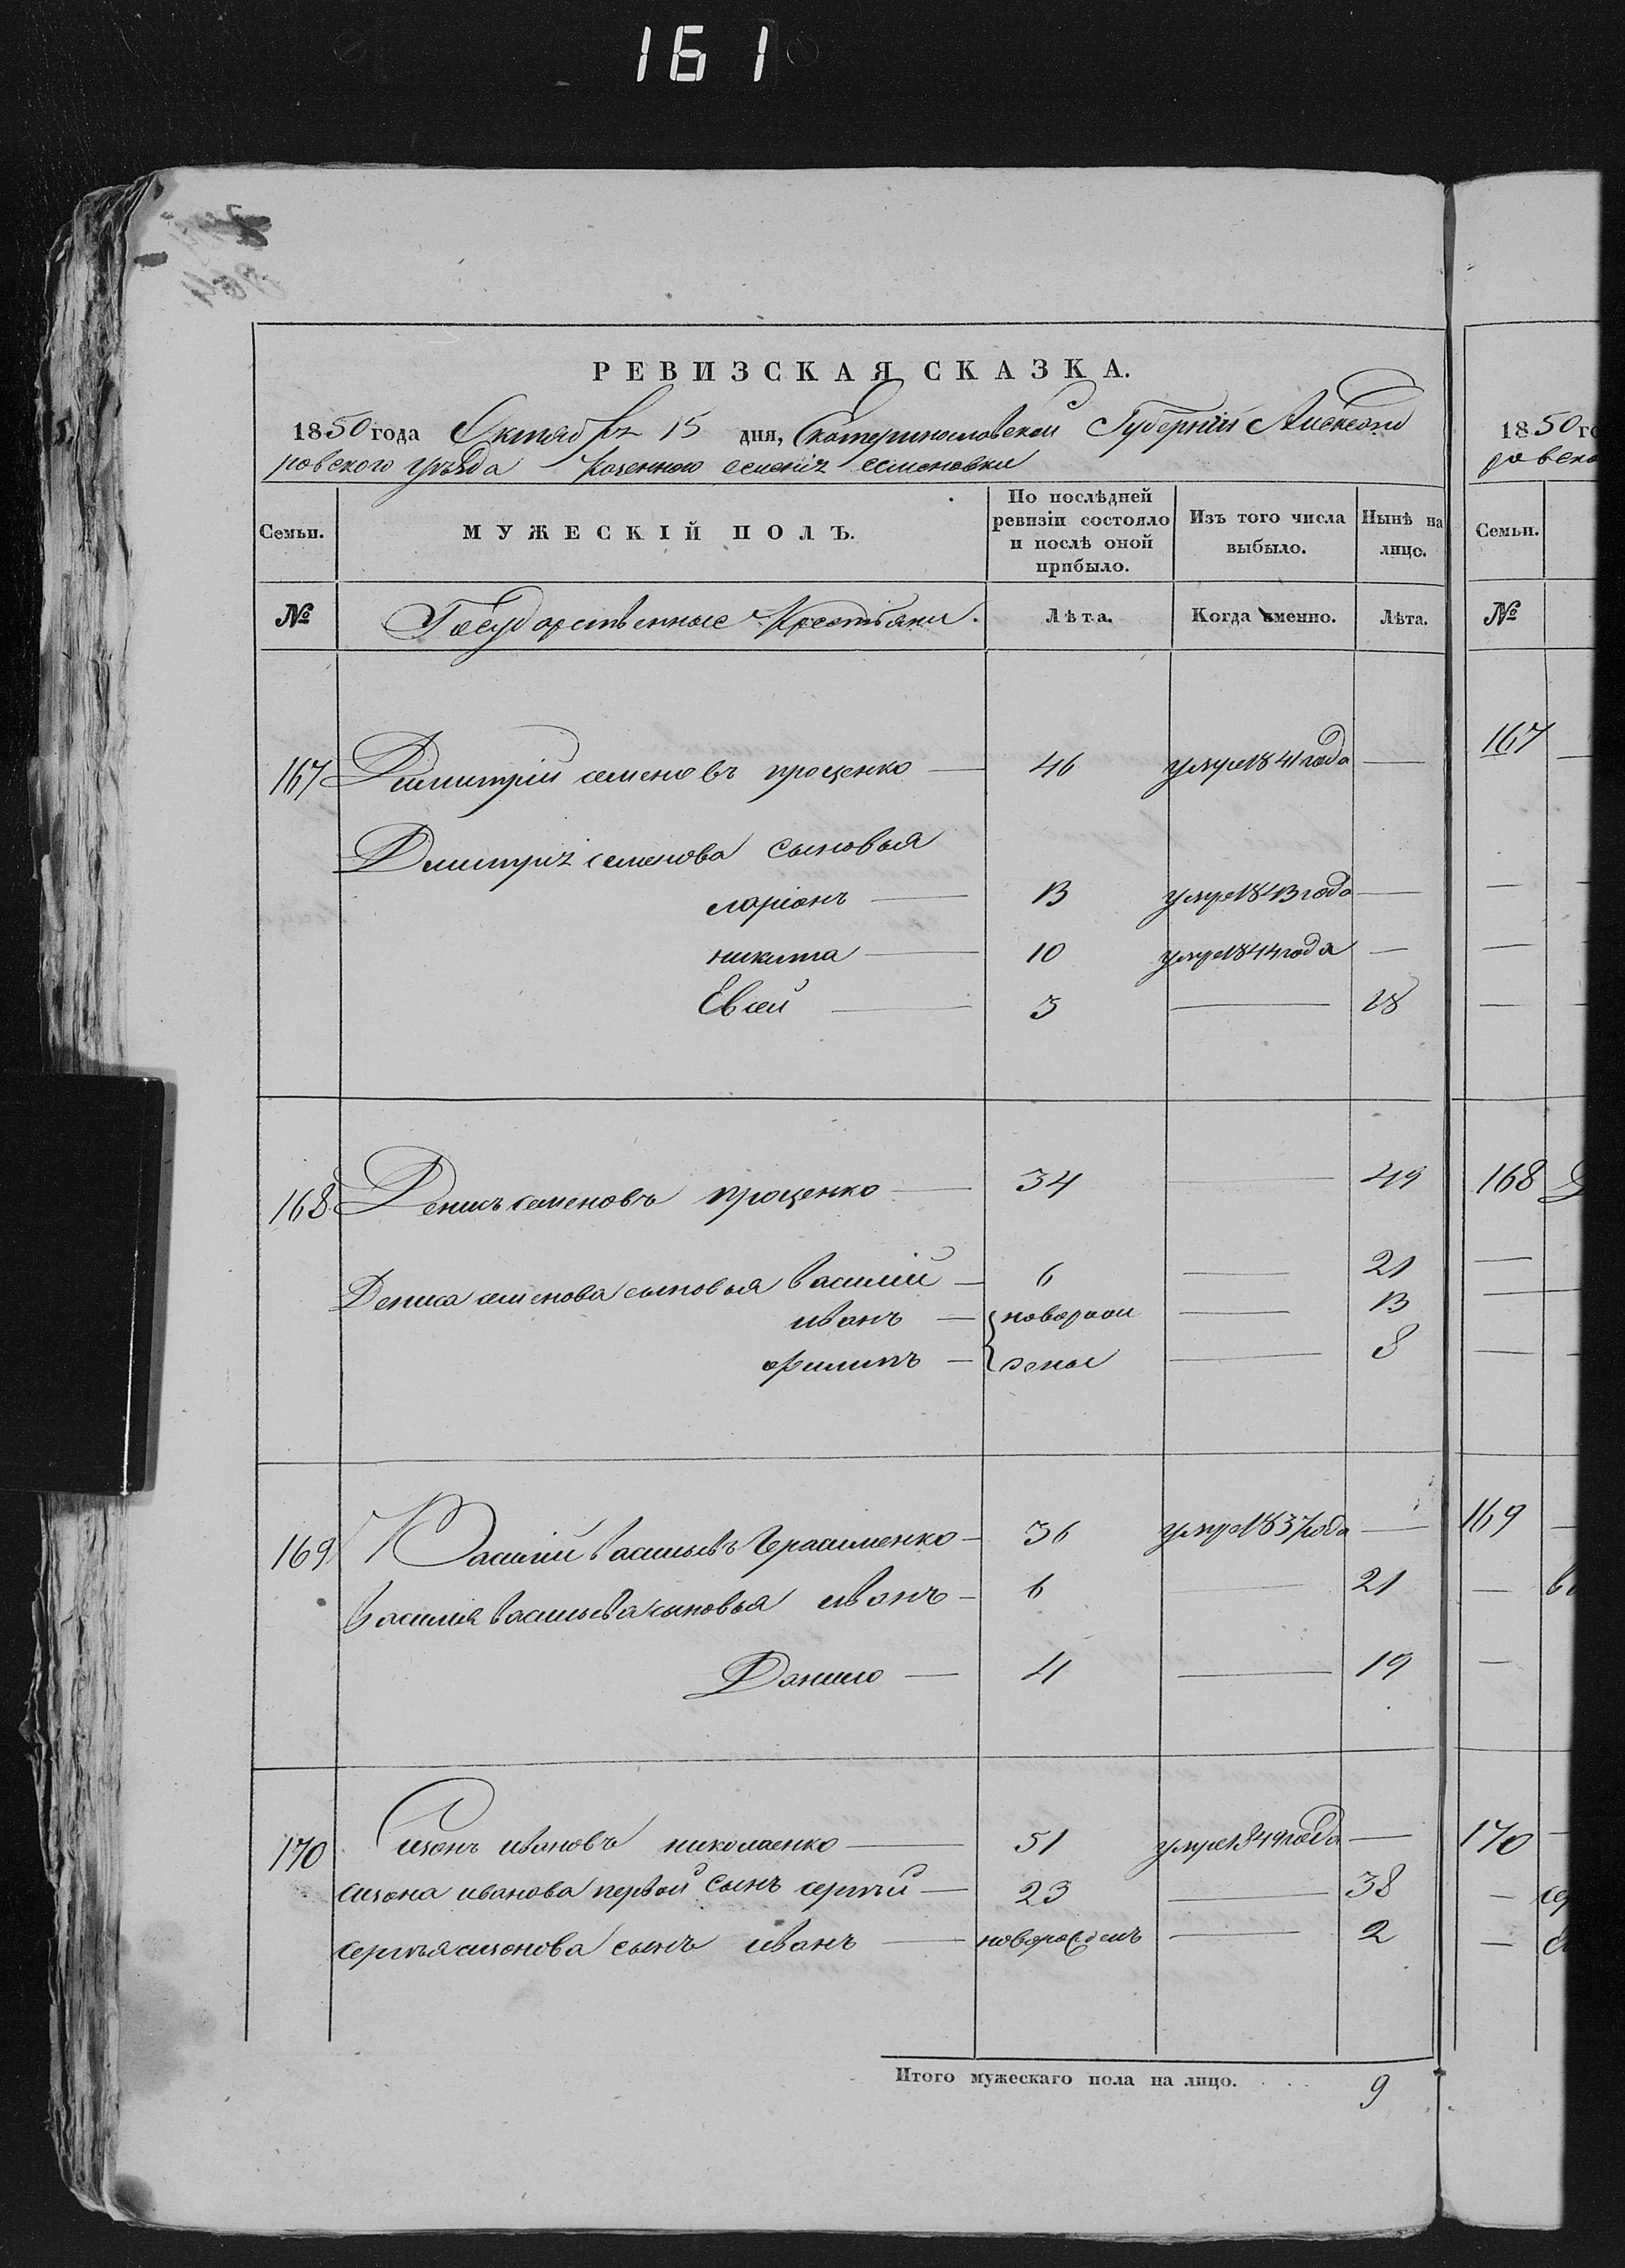 161
РЕВИЗСКАЯ СКАЗКА.
1850 года Октября 15 дня, Екатеринославской Губернии Александ
ровского уѣзда Казенного селенія Семеновки
Семьи. МУЖЕСКІЙ ПОЛЪ. По послѣдней ревизіи состояло и послѣ оной прибыло. Изъ того числа выбыло. Нынѣ на лицо.
№ Государственные Крестьяне. Лѣта. Когда именно. Лѣта.
167 Димитрій семеновъ проценко — 46 умре 1841 года —
Дмитрія семенова сыновья
ларіонъ — 13 умре 1843 года —
никита — 10 умре 1844 года —
Евсей — 3 — 18
168 Денисъ семеновъ проценко — 34 — 49
Дениса семенова сыновья василій — 6 — 21
иванъ — новорож — 13
филипъ — деные — 8
169 Василій васильевъ Герасименко — 36 умре 1837 года —
василия васильева сыновья иванъ — 6 — 21
Данило — 4 — 19
170 Сизонъ ивановъ николаенко — 51 умре 1849 года —
сизона иванова первой сынъ сергѣй — 23 — 38
сергѣя сизонова сынъ иванъ — новорожденъ — 2
Итого мужескаго пола на лицо. 9
1850 го
ровско
Семьи.
№
167
168
169
170